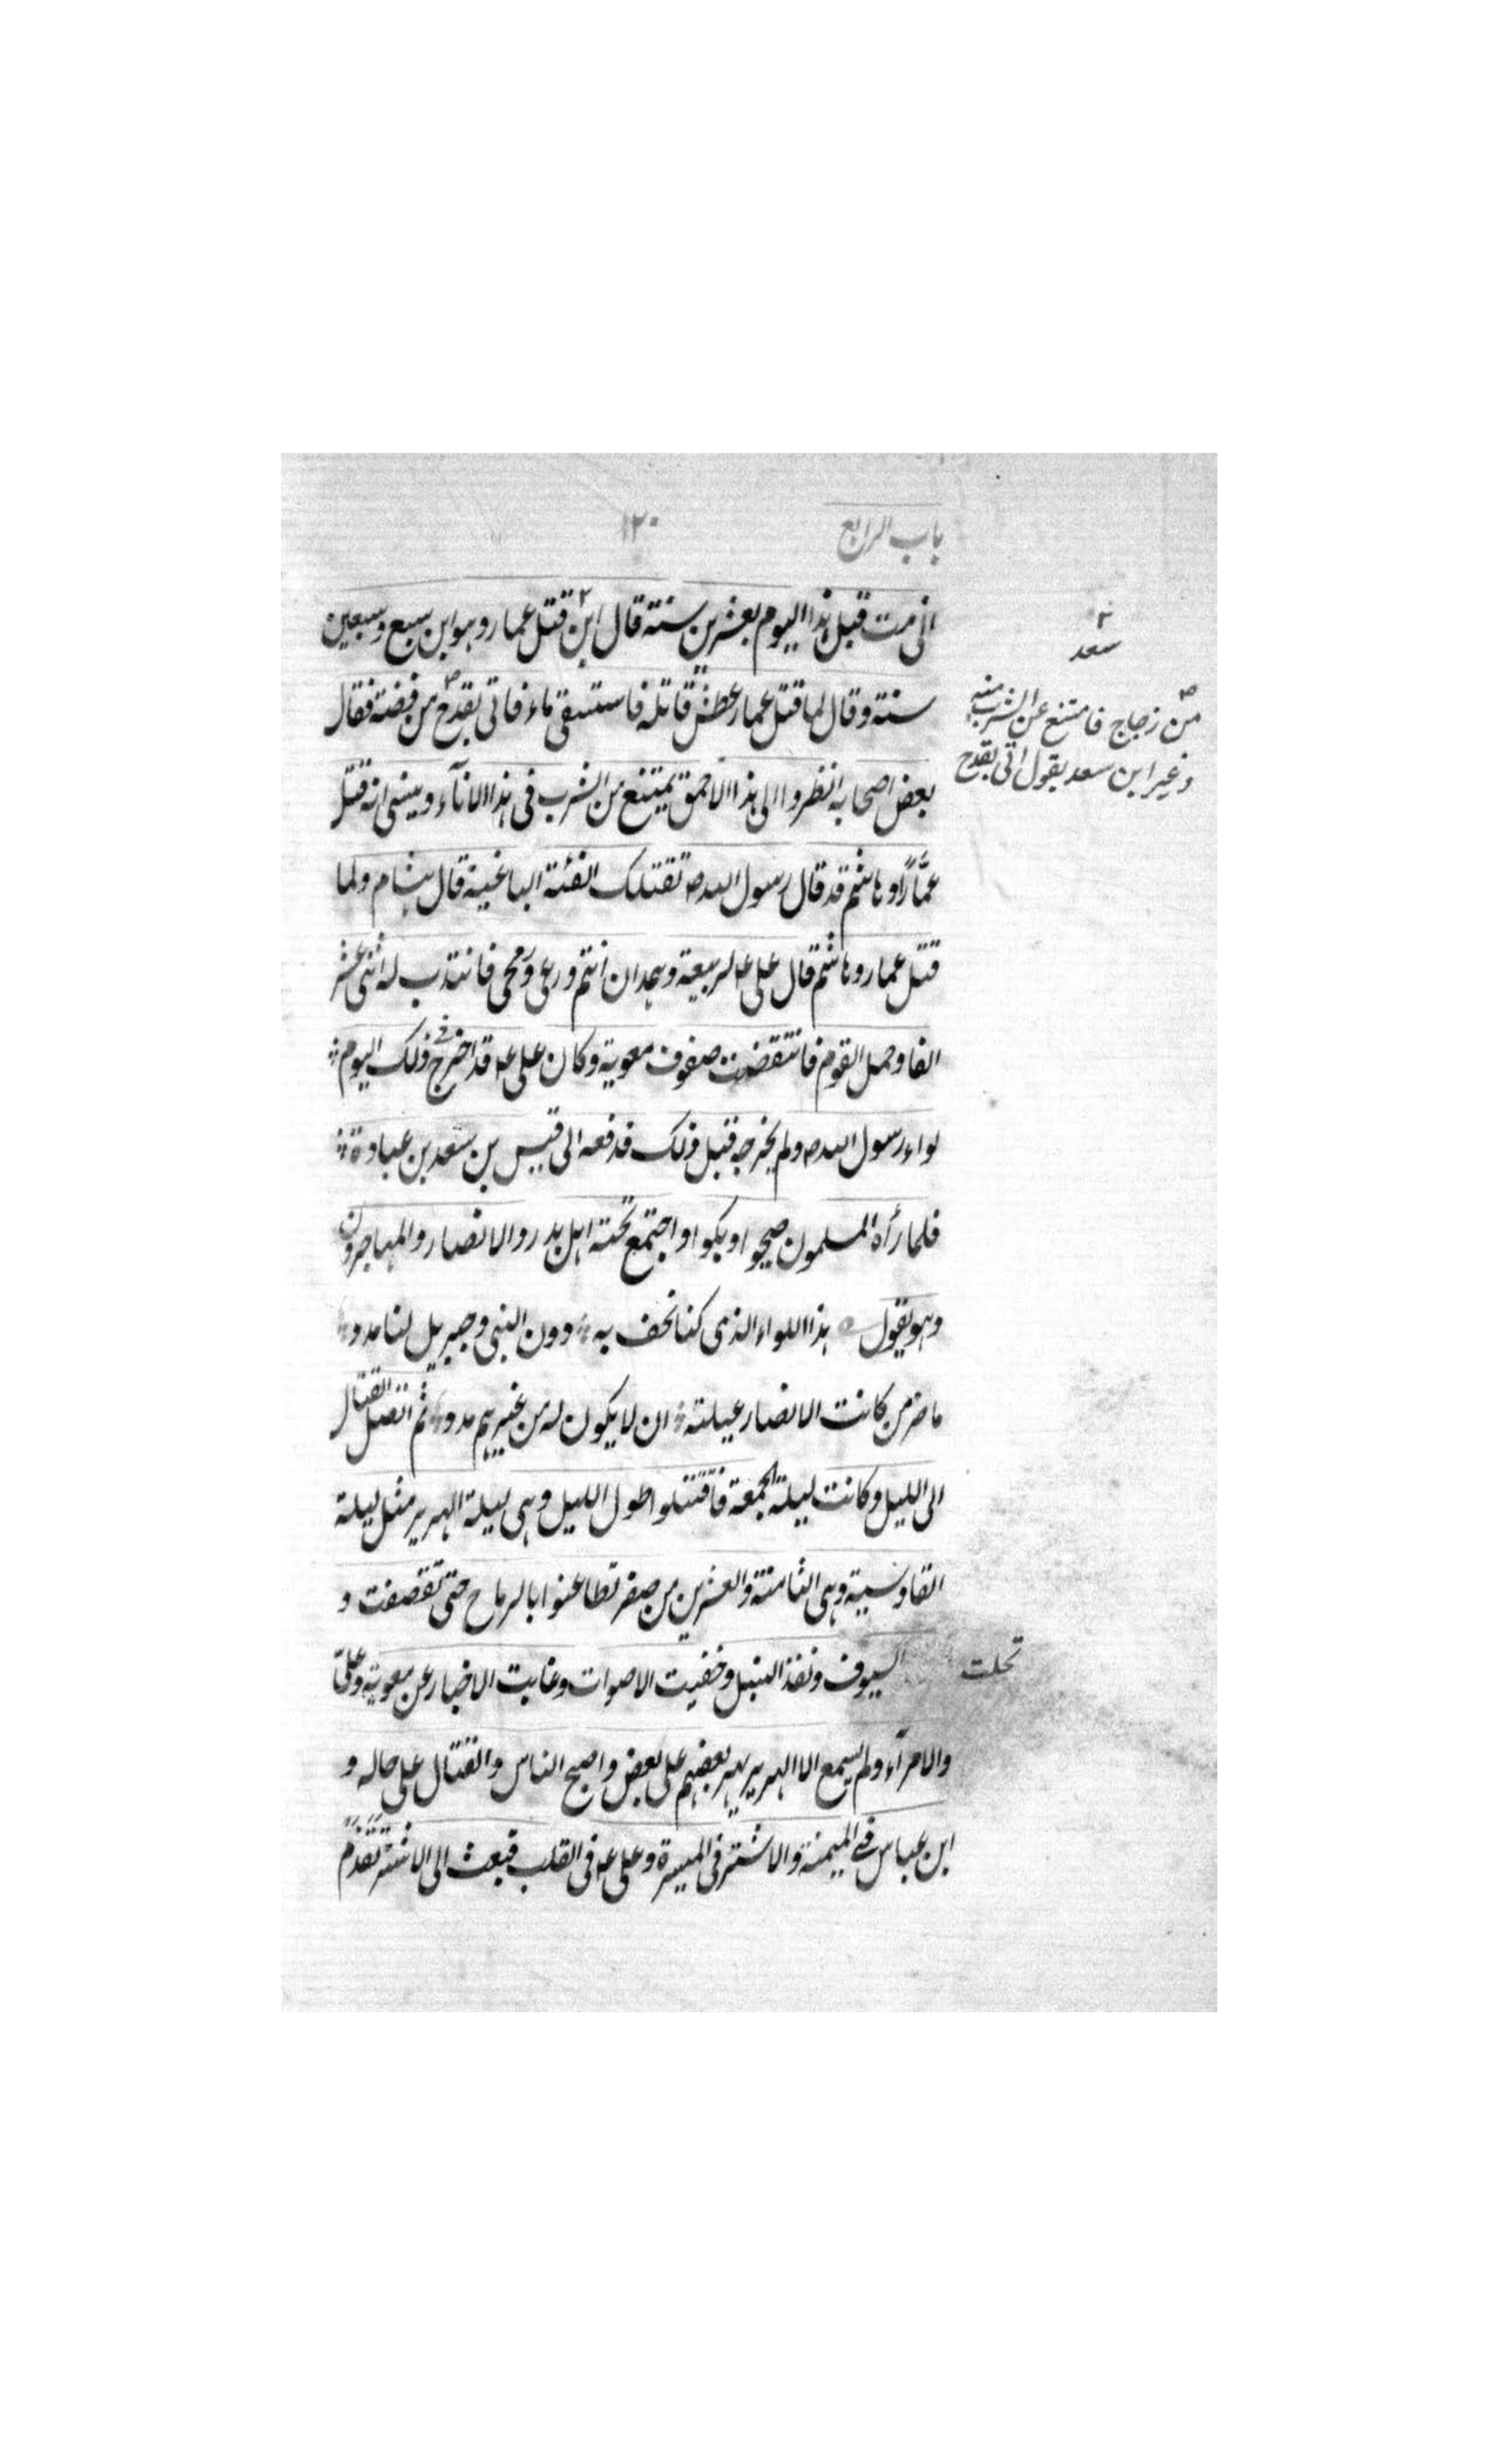 باب الرابع ١٢٠
انى مت قبل هذا اليوم بعشرين سنة قال ابن ٢ قتل عمار وهو ابن سبع وسبعين
سنة وقال لما قتل عمار عطش قاتله فاستسقى ماء فاتى بقدح من فضة فقال
بعض اصحابه انظروا الى هذا الاحمق يمتنع من الشرب فى هذا الاناء وينسى انه قتل
عمّارًا وهاشم قد قال رسول الله ص تقتلك الفئة الباغية قال هشام ولما
قتل عمار وهاشم قال على عه لربيعة وهمدان انتم درعى ورمحى فانتدب له اثنى عشر
الفا وحمل القوم فانتقضت صفوف معوية وكان على عه قد اخرج فى ذلك اليوم
لواء رسول الله ص ولم يخرجه قبل ذلك فدفعه الى قيس بن سعد بن عبادة
فلما رأه المسلمون صيحوا وبكوا واجتمع تحته اهل بدر والانصار والمهاجرون
وهو يقول هذا اللواء الذى كنا نحف به دون النبى وجبريل لنا مدد
ما ضر من كانت الانصار عيلته ان لا يكون له من غيرهم مدد ثم اتصل القتال
الى الليل وكانت ليلة الجمعة فاقتتلوا طول الليل وهى ليلة الهرير مثل ليلة
القادسية وهى الثامنة والعشرين من صفر تطاعنوا بالرماح حتى تقصفت و
السيوف ونفذ النبل وخفيت الاصوات وغابت الاخبار عن معوية وعلىّ
والامرآء ولم يسمع الا الهرير يهر بعضهم على بعض واصبح الناس والقتال على حاله و
ابن عباس فى الميمنة والاشتر فى الميسرة وعلى عه فى القلب فبعث الى الاشتر تقدم
٢
سعد
من زجاج فامتنع عن الشرب منه
وغير ابن سعد يقول اتى بقدح
تحلت